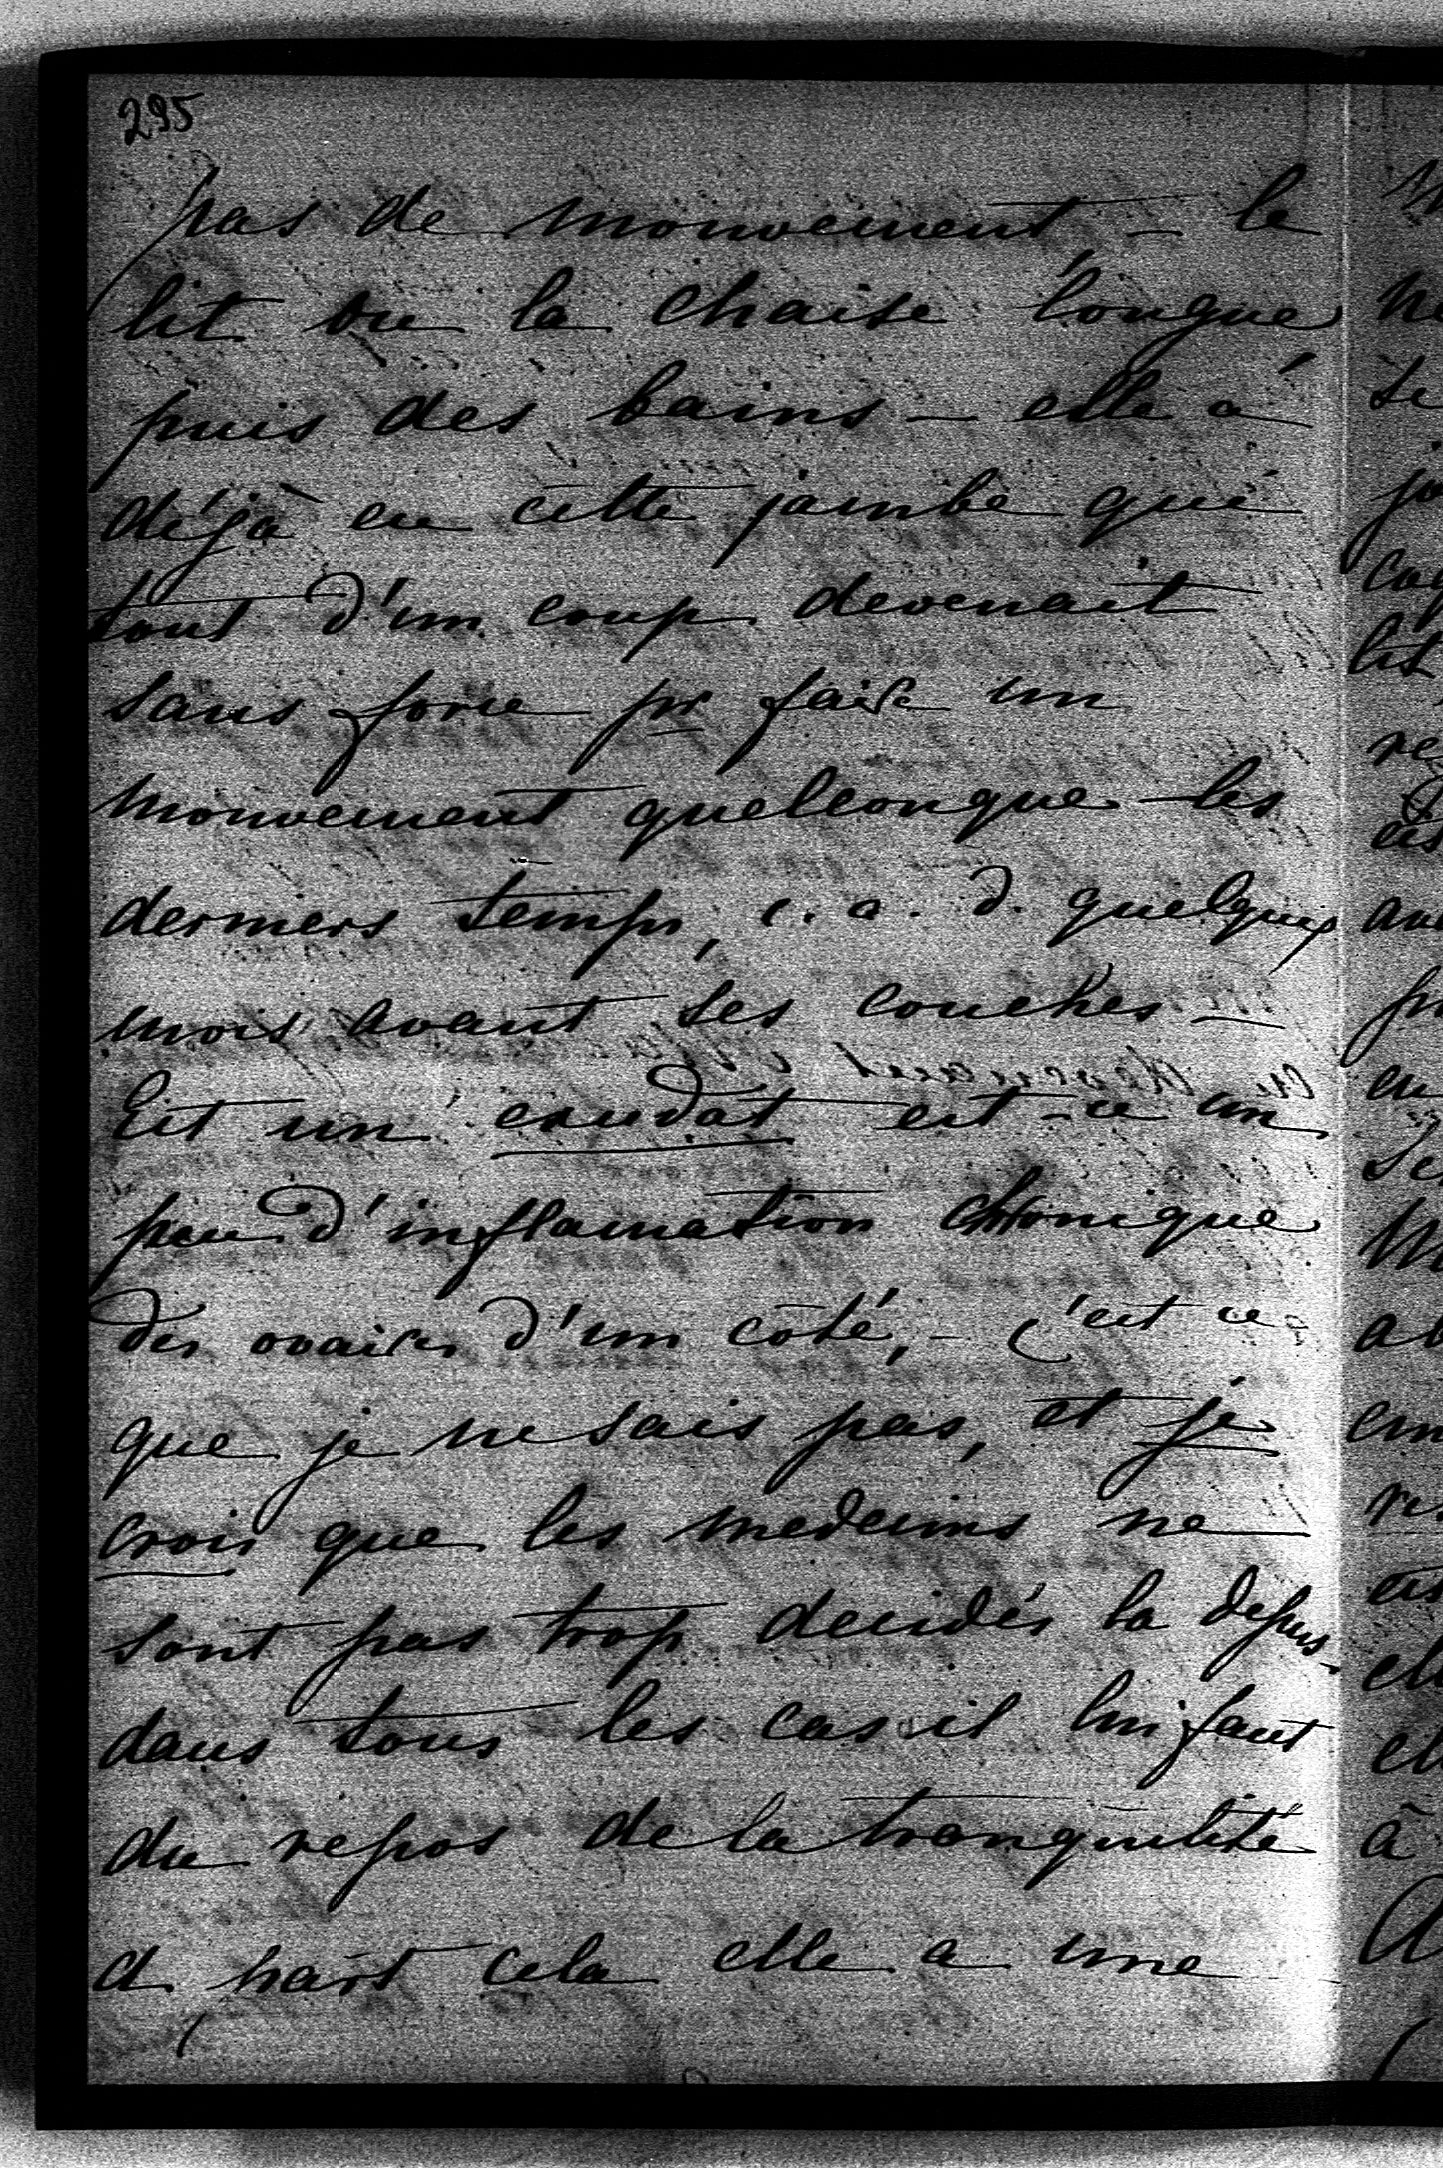 295
pas de mouvement, – le
lit ou la chaise longue
puis des bains – elle a
déjà eu cette jambe qui
tout d'un coup devenait
sans force pr faire un
mouvement quelconque les
derniers temps, c. a. d. quelques
mois avant ses couches –
Est un exudat est-ce un
peu d'inflamation chronique
des ovaires d'un côté, – c'est ce
que je ne sais pas, et je
crois que les medecins ne
sont pas trop decidés la dessus.
dans tous les cas il lui faut
du repos de la tranquilité
a part cela elle a une